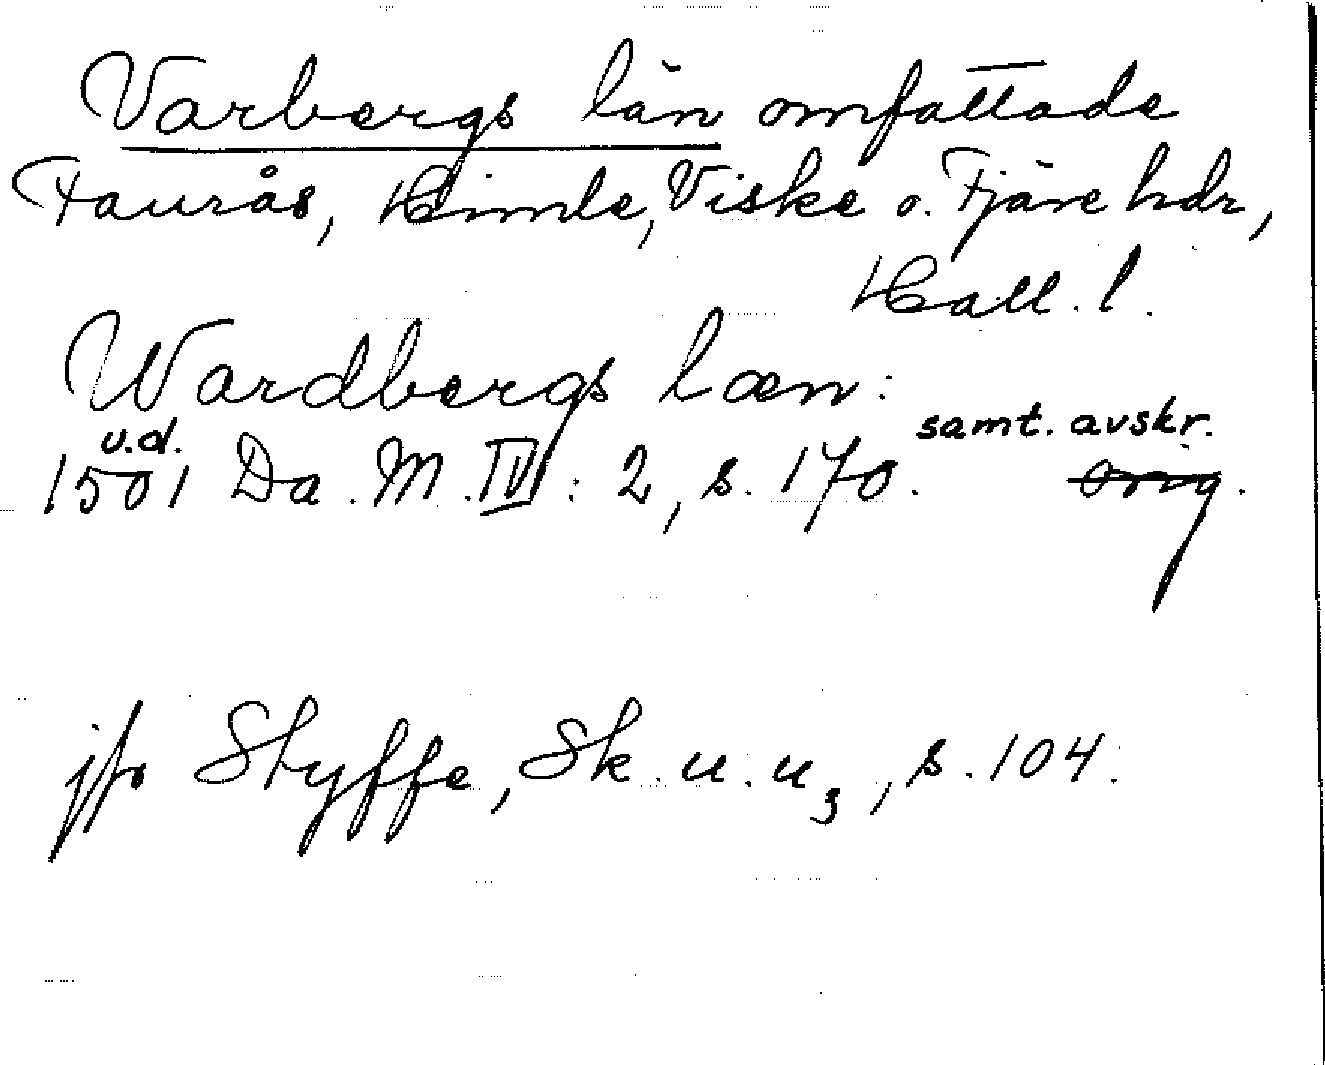 Varbergs län omfattade
Faurås, Himle, Viske o. Fjäre hdr,
Hall. l.
Wardbergs læn:
u.d. samt. avskr.
1501 Da. M. IV: 2, s. 170. orig.
jfr Styffe, Sk. u. u₃, s. 104.